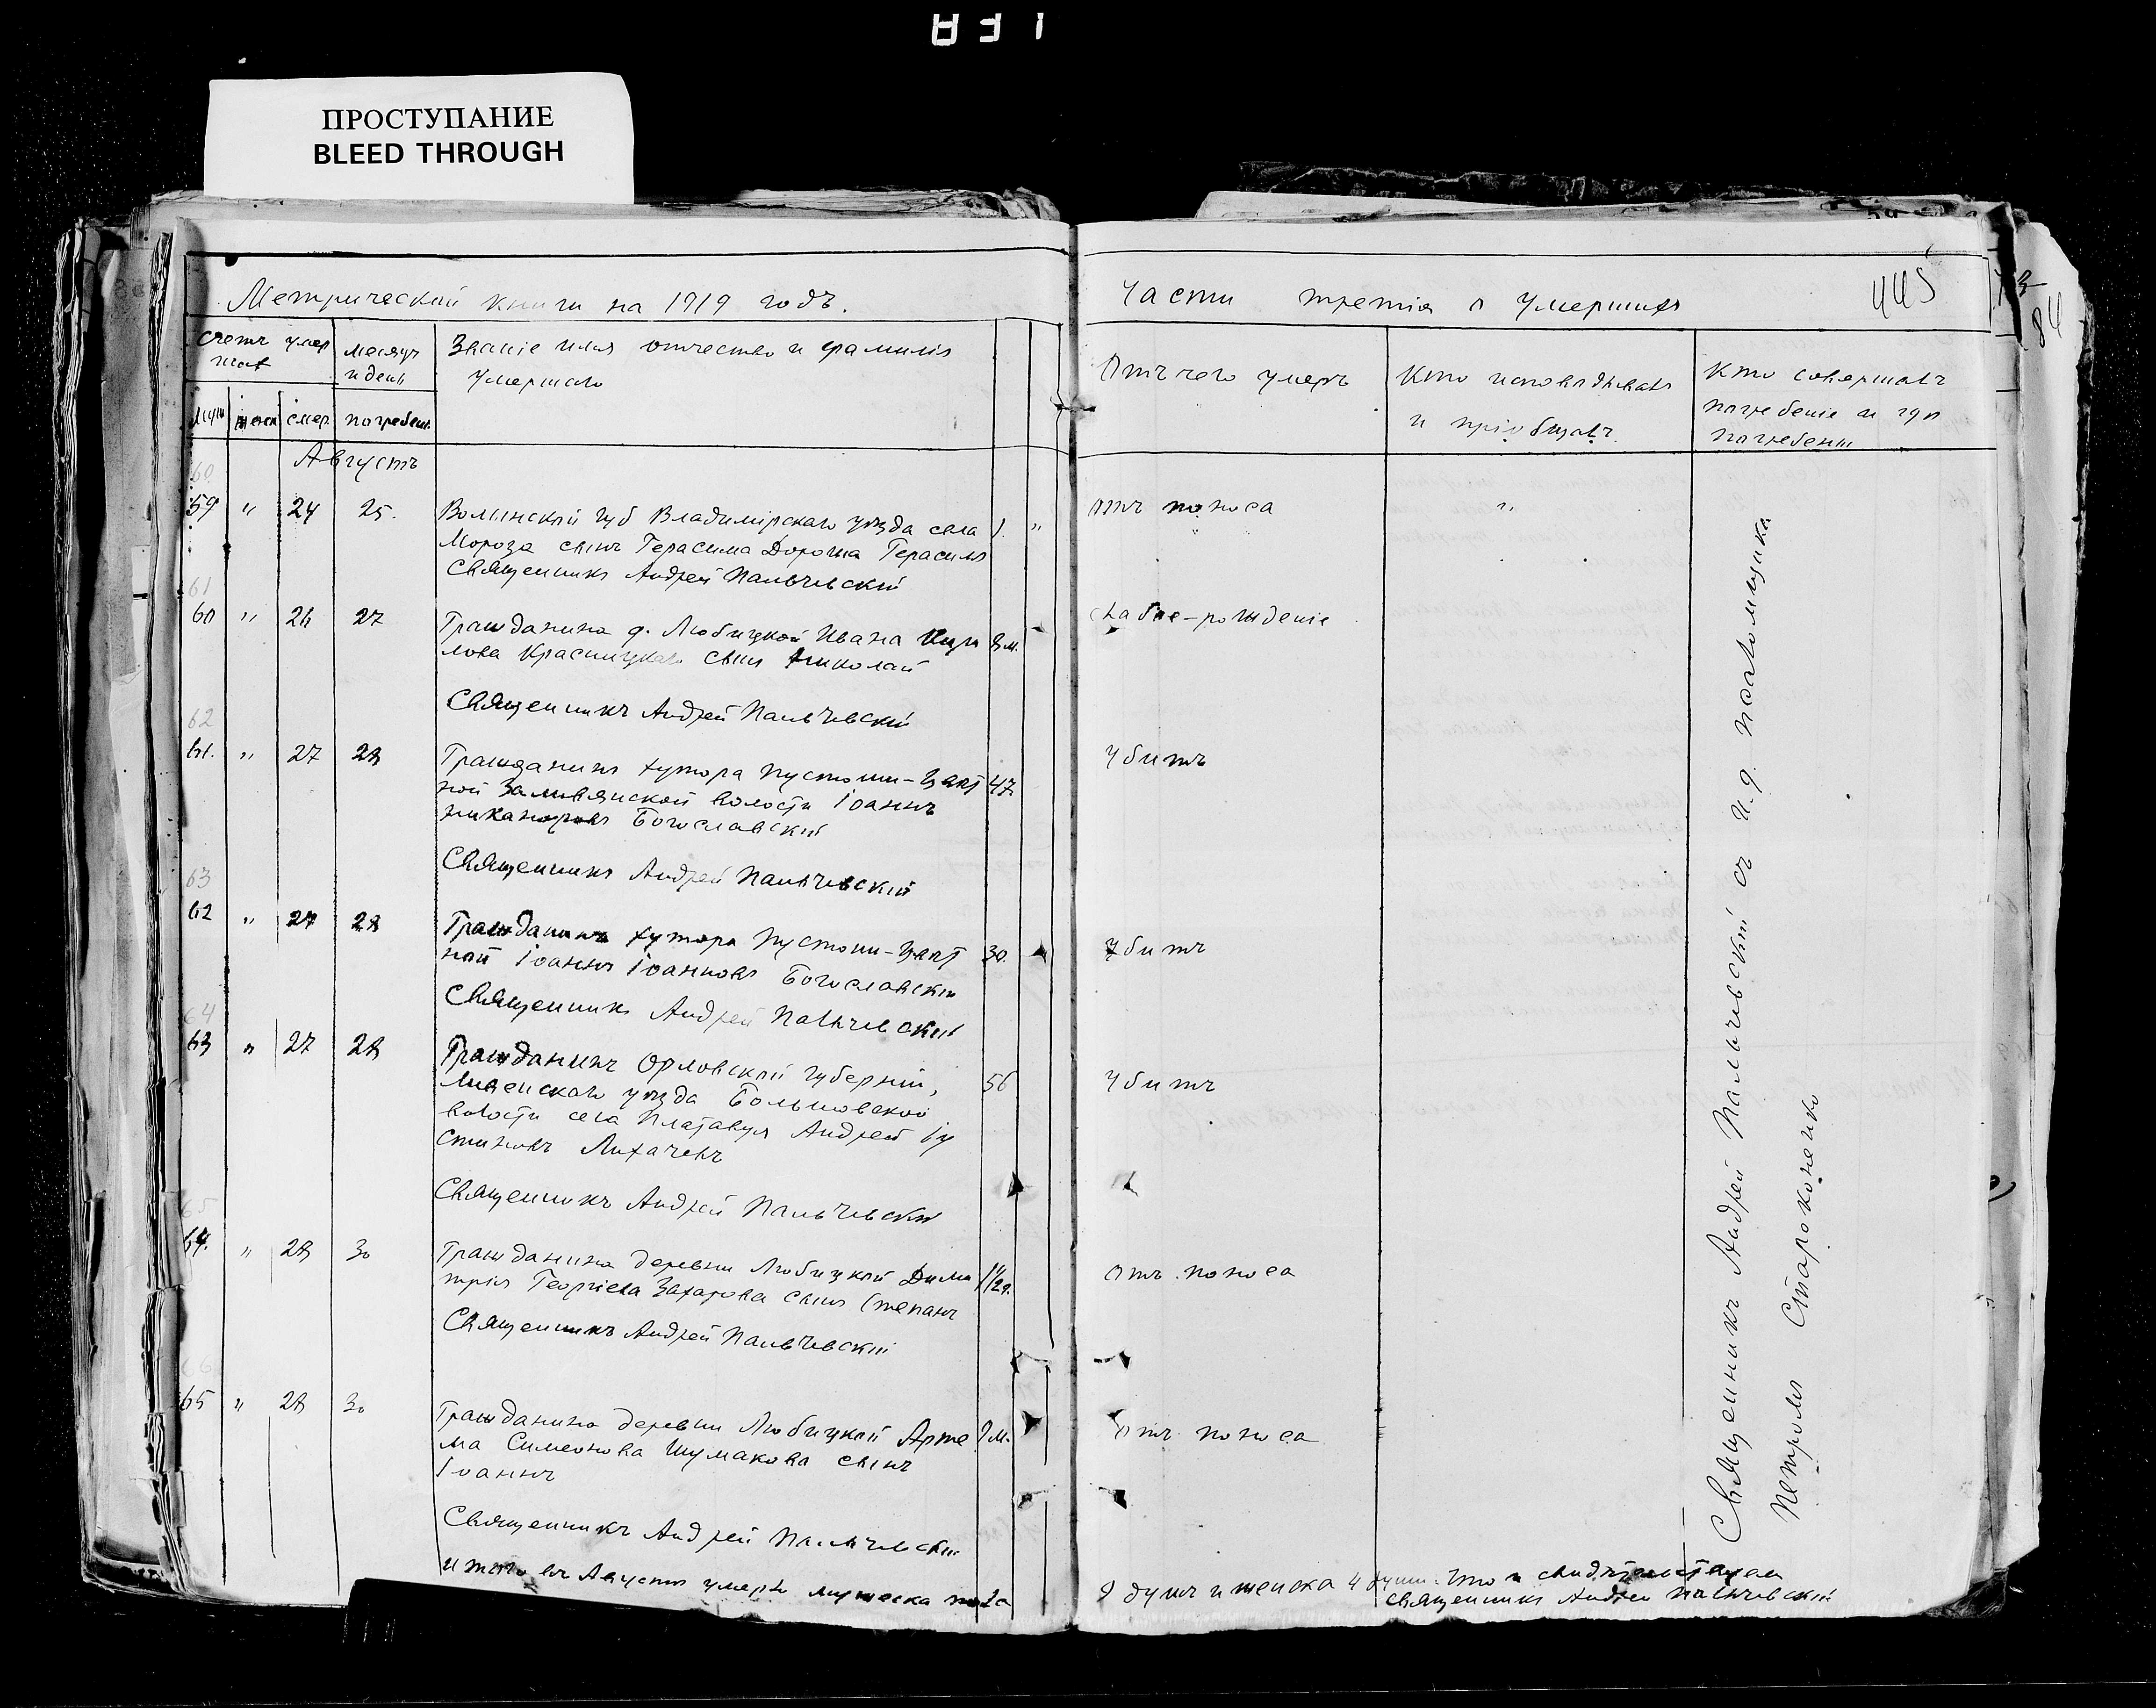 ПРОСТУПАНИЕ
BLEED THROUGH
Метрической книги на 1919 годъ.
части третія о умершихъ
445
84
счетъ умер
шихъ
месяцъ
и день
Званіе имя отчество и фамилія
умершаго
Отъ чего умеръ
Кто исповѣдывалъ
и пріобщалъ
Кто совершалъ
погребеніе и гдѣ
погребены
муж женск смер. погребен.
Августъ
59 " 24 25.
Волынской губ Владимірскаго уѣзда села
Мороза сынъ Герасима Дороша Герасимъ
Священникъ Андрей Пальчевскій
1. "
отъ поноса
"
60 " 26 27
Гражданина д. Любицкой Ивана
лова Красницкаго сынъ Николай
Священникъ Андрей Пальчевскій
слабое-рожденіе
61. " 27 28
Гражданинъ хутора Пустоши-
ной волости Іоаннъ
Никаноровъ Богославскій
Священникъ Андрей Пальчевскій
47
Убитъ
62 " 27 28
Гражданинъ хутора Пустоши-
ной Іоаннъ Іоанновъ Богославскій
Священникъ Андрей Пальчевскій
30.
Убитъ
63 " 27 28
Гражданинъ Орловской губерніи,
Ливенскаго уѣзда
волости села Андрей Іу
стиновъ Лихачевъ
Священникъ Андрей Пальчевскій
56
Убитъ
64. " 28 30
Гражданина деревни Любицкой Дими
трія Георгіева Захарова сынъ Степанъ
Священникъ Андрей Пальчевскій
1 1/2 г.
Отъ поноса
65 " 28 30
Гражданина деревни Любицкой Арте
ма Симеонова Шумакова сынъ
Іоаннъ
Священникъ Андрей Пальчевскій
Отъ поноса
Священникъ Андрей Пальчевскій съ и.д. псаломщика
Петромъ Староконенко
итого въ Августѣ умерло мужеска пола
душъ и женска 4 души. Что и свидѣтельствуемъ
Священникъ Андрей Пальчевскій